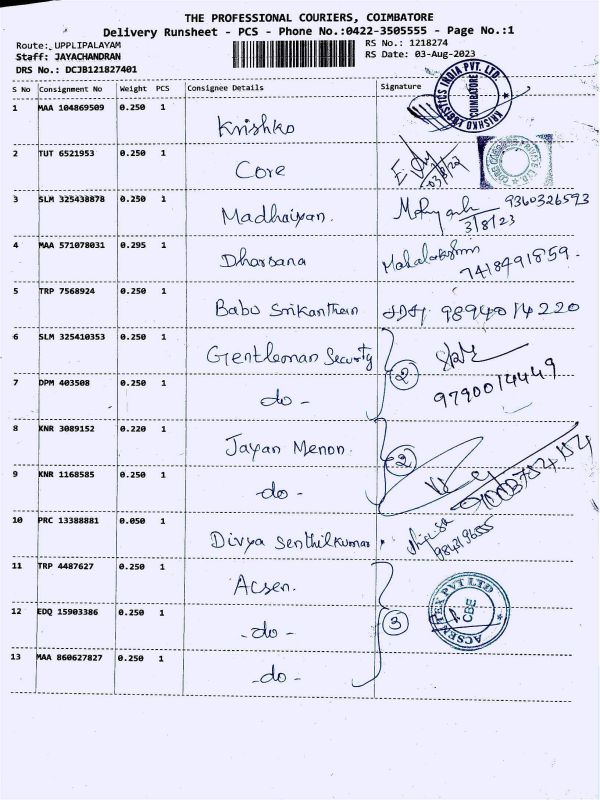 THE PROFESSIONAL COURIERS, COIMBATORE
Delivery Runsheet - PCS - Phone No.:0422-3505555 - Page No.:1
Route: UPPLIPALAYAM
Staff: JAYACHANDRAN
DRS No.: DCJB121827401
RS No.: 1218274
RS Date: 03-Aug-2023
S No Consignment No Weight PCS Consignee Details Signature
1 MAA 104869509 0.250 1 Krishko
KRISHKO LOGISTICS INDIA PVT. LTD. COIMBATORE
2 TUT 6521953 0.250 1 Core
03/8/23
3 SLM 325438878 0.250 1 Madhaiyan. 9360326593
3/8/23
4 MAA 571078031 0.295 1 Dharsana Mahalakshmi
7418491859.
5 TRP 7568924 0.250 1 Babu Srikanthan 9894014220
6 SLM 325410353 0.250 1 Gentleman Security
2
7 DPM 403508 0.250 1 -do- 9790014449
8 KNR 3089152 0.220 1 Jayan Menon.
2
9 KNR 1168585 0.250 1 -do-
10 PRC 13388881 0.050 1 Divya Senthilkumar
11 TRP 4487627 0.250 1 Acsen.
12 EDQ 15903386 0.250 1 -do- 3
ACSEN TEX PVT LTD CBE
13 MAA 860627827 0.250 1 -do-